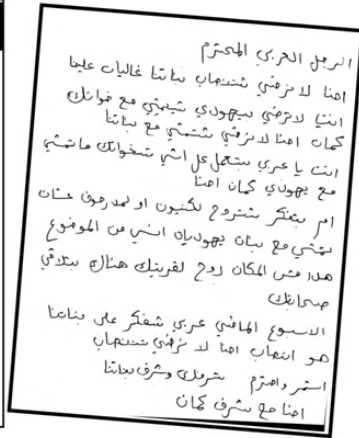 الرجل العربي المحترم
احنا لا نرضي تنتصاب بناتنا غاليات علينا
انتي لا ترضي يهودي يمشي مع خواتك
كمان احنا لا نرضي تتمشي مع بناتنا
انت يا عربي بتعمل كل اشي خواتك ما تمشي
مع يهودي كمان احنا
ام بتفكر تتروح لكنيون او لمدرحوف عشان
تمشي مع بنات يهوديات انسي من الموضوع
هذا مش المكان روح لقريتك هناك بتلاقي
صحابتك
الاسبوع الماضي عربي فكر على بناتنا
هو انتصاب احنا لا نرضي تنتصاب
استمر واحترم شرفك وشرف بناتنا
احنا مع شرف كمان